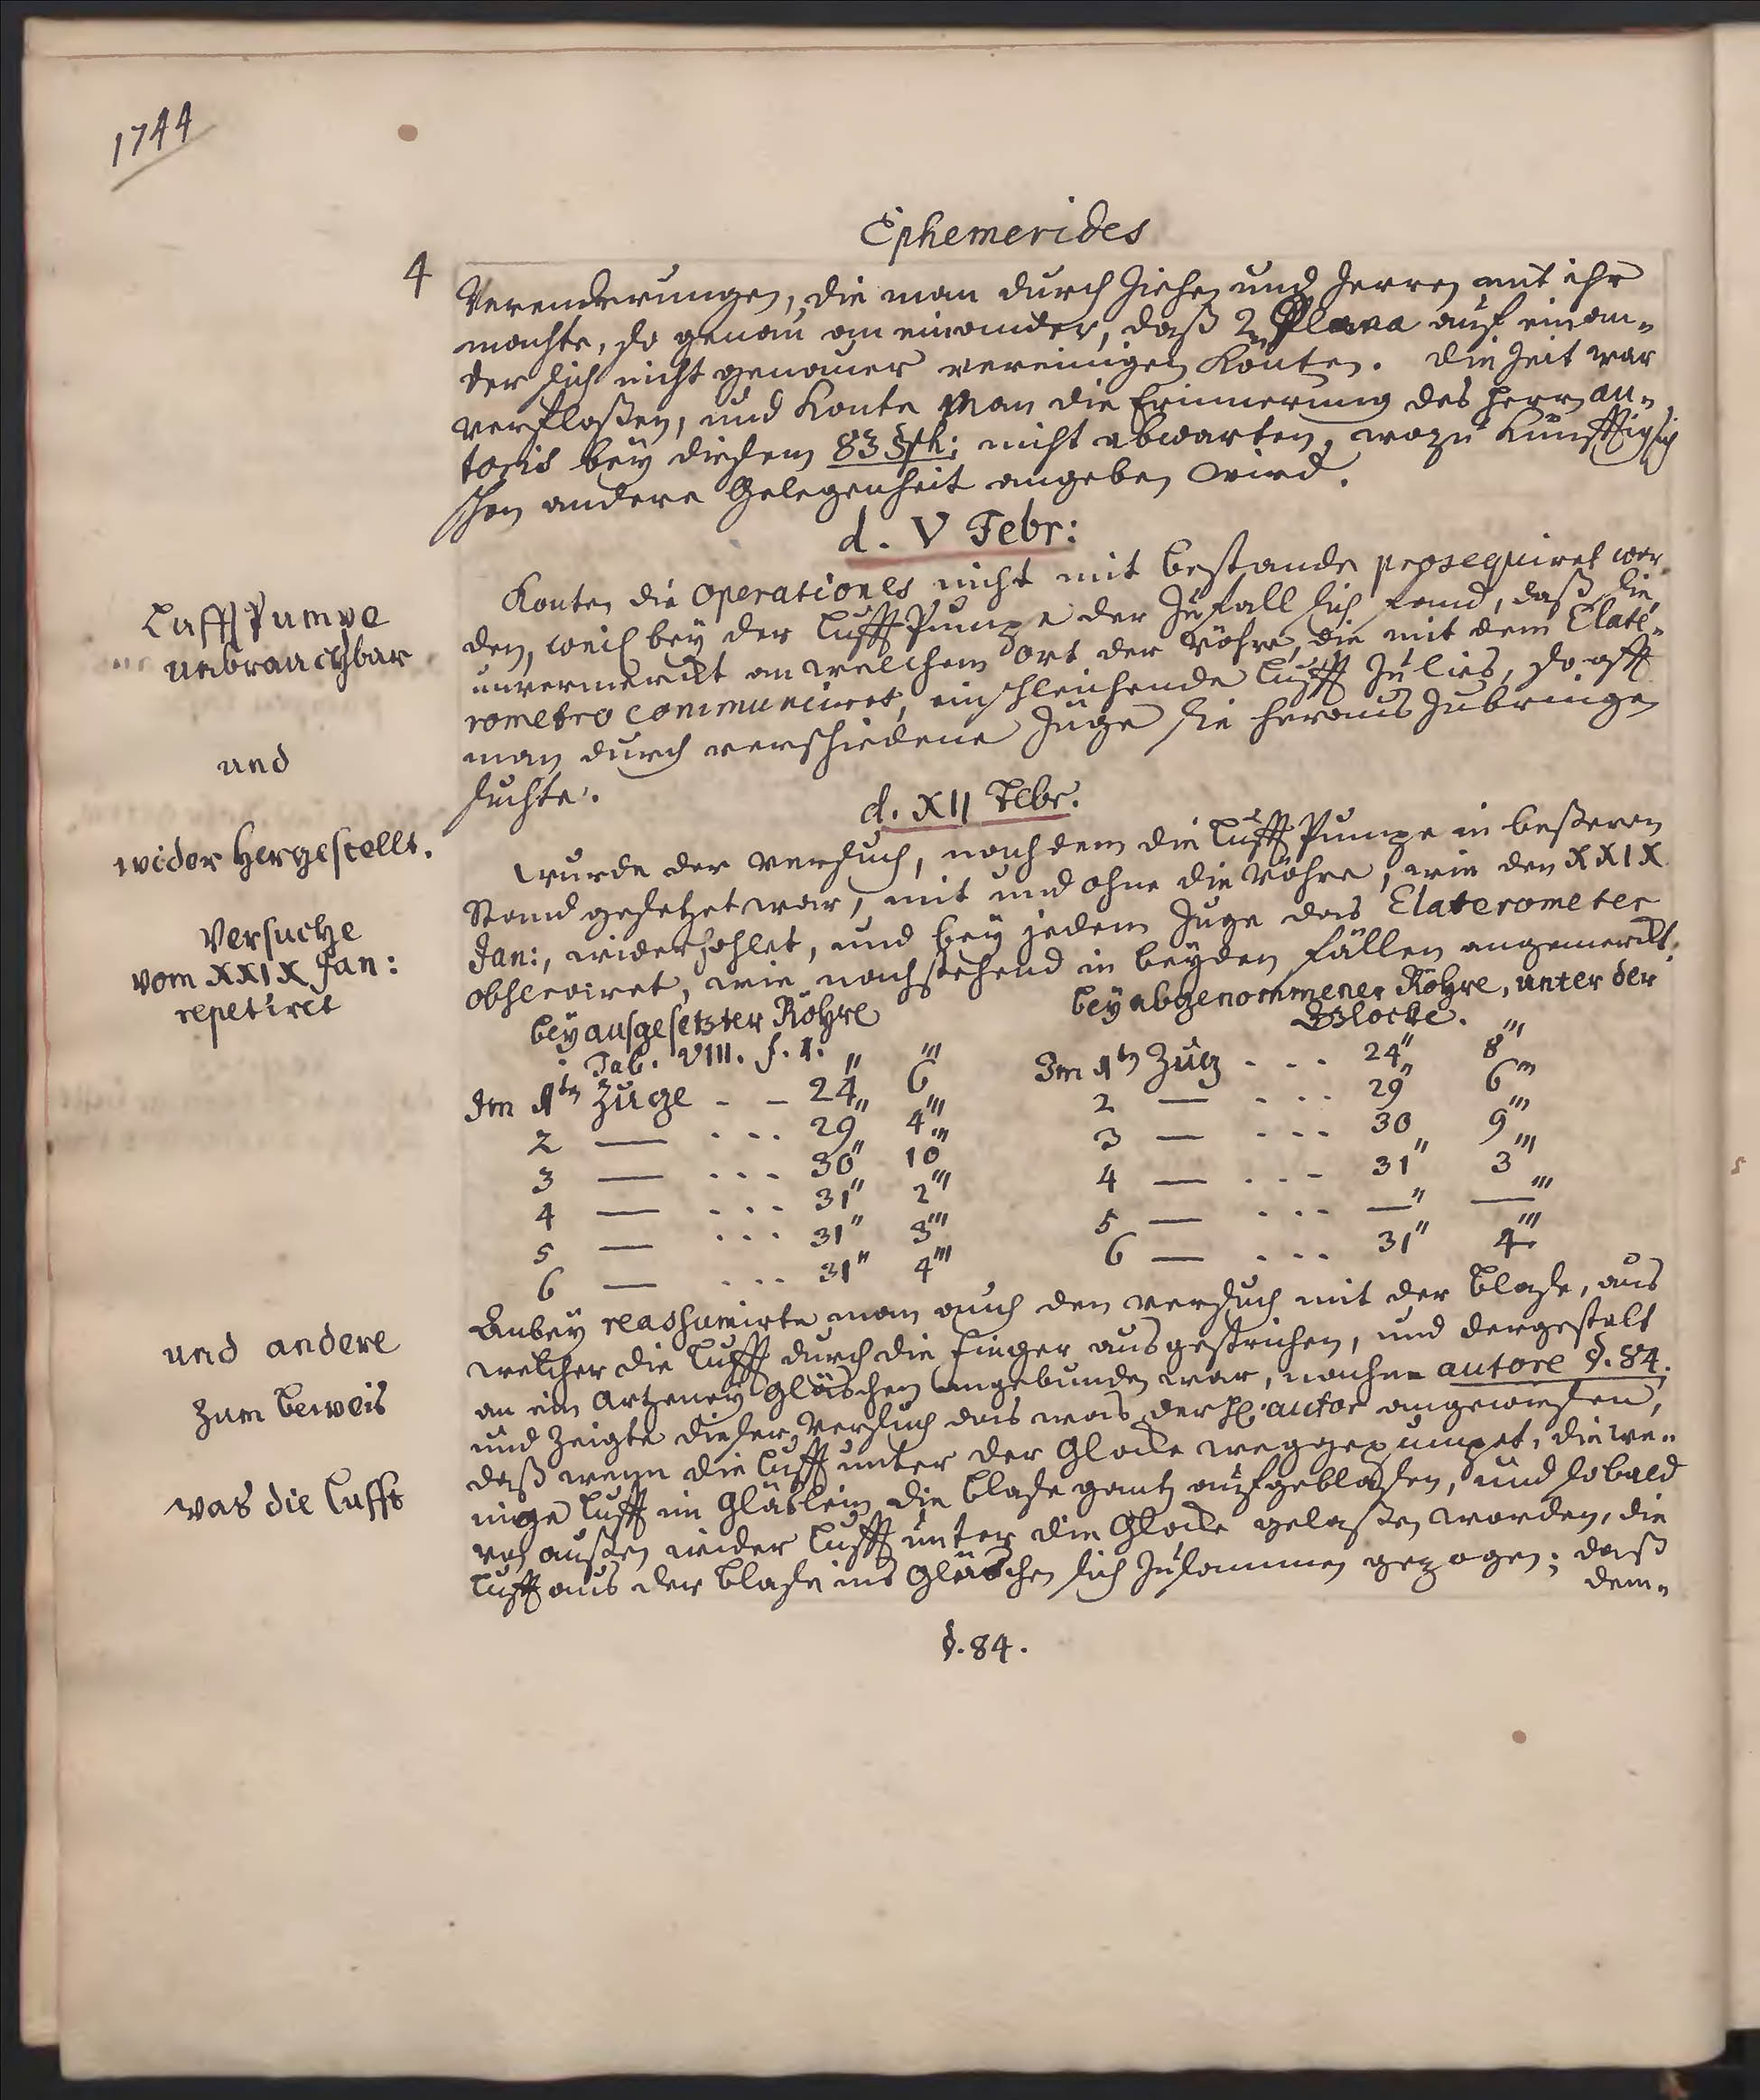 1744
Ephemerides
4
Verenderungen, die man durch Ziehen und Zerren mit ihr
machte, so genau an einander, daß 2 Plana auf einan-
der sich nicht genauer vereinigen konten. Die Zeit war
verfloßen, und konte man die Erinnerung des Herrn au-
toris bey diesem 83 §ph: nicht abwarten, wozu künfftig sich
schon andere Gelegenheit angeben wird.
d. V Febr:
Lufft Pumpe
unbrauchbar
Konten die operationes nicht mit bestande prosequiret wer-
den, weil bey der Lufft Pumpe der Zufall sich fand, daß sie
unvermerckt an welchem Ort der Röhre, die mit dem Elate-
rometro communiciret, einschleichende Lufft zu lies, so offt
man durch verschiedene Züge sie heraus zubringen
suchte.
und
d. XII Febr.
wider hergestellt.
Wurde der Versuch, nachdem die Lufft Pumpe in beßeren
Stand gesetzet war, mit und ohne die Röhre, wie den XXIX
Jan:, widerhohlet, und bey jedem Zuge das Elaterometer
observiret, wie nachstehend in beyden Fällen angemerckt.
Versuche
vom XXIX Jan:
repetiret
bey aufgesetzter Röhre
Tab. VIII. f. 1.
bey abgenommener Röhre, unter der
Glocke.
Im 1ten Zuge - - 24" 6'''
2 — . . . 29" 4'''
3 — . . . 30" 10'''
4 — . . . 31" 2'''
5 — . . . 31" 3'''
6 — . . . 31" 4'''
Im 1ten Zug . . . 24" 8'''
2 — . . . 29" 6'''
3 — . . . 30 9'''
4 — . . . 31" 3'''
5 — . . . —" —'''
6 — . . . 31" 4'''
und andere
zum beweis
was die Lufft
Anbey reassumirte man auch den Versuch mit der Blase, aus
welcher die Lufft durch die Finger ausgestrichen, und dergestalt
an ein Artzeney Gläschen angebunden war, nach autore §. 84.
und zeigte dieser Versuch das was der H. autor angewiesen,
daß wenn die Lufft unter der Glocke weggepumpet, die we-
nige Lufft im Gläslein die Blase gantz aufgeblasen, und so bald
von außen wider Lufft unter die Glocke gelaßen worden, die
Lufft aus der Blase ins Gläschen sich zusammen gezogen; daß
dem-
§. 84.